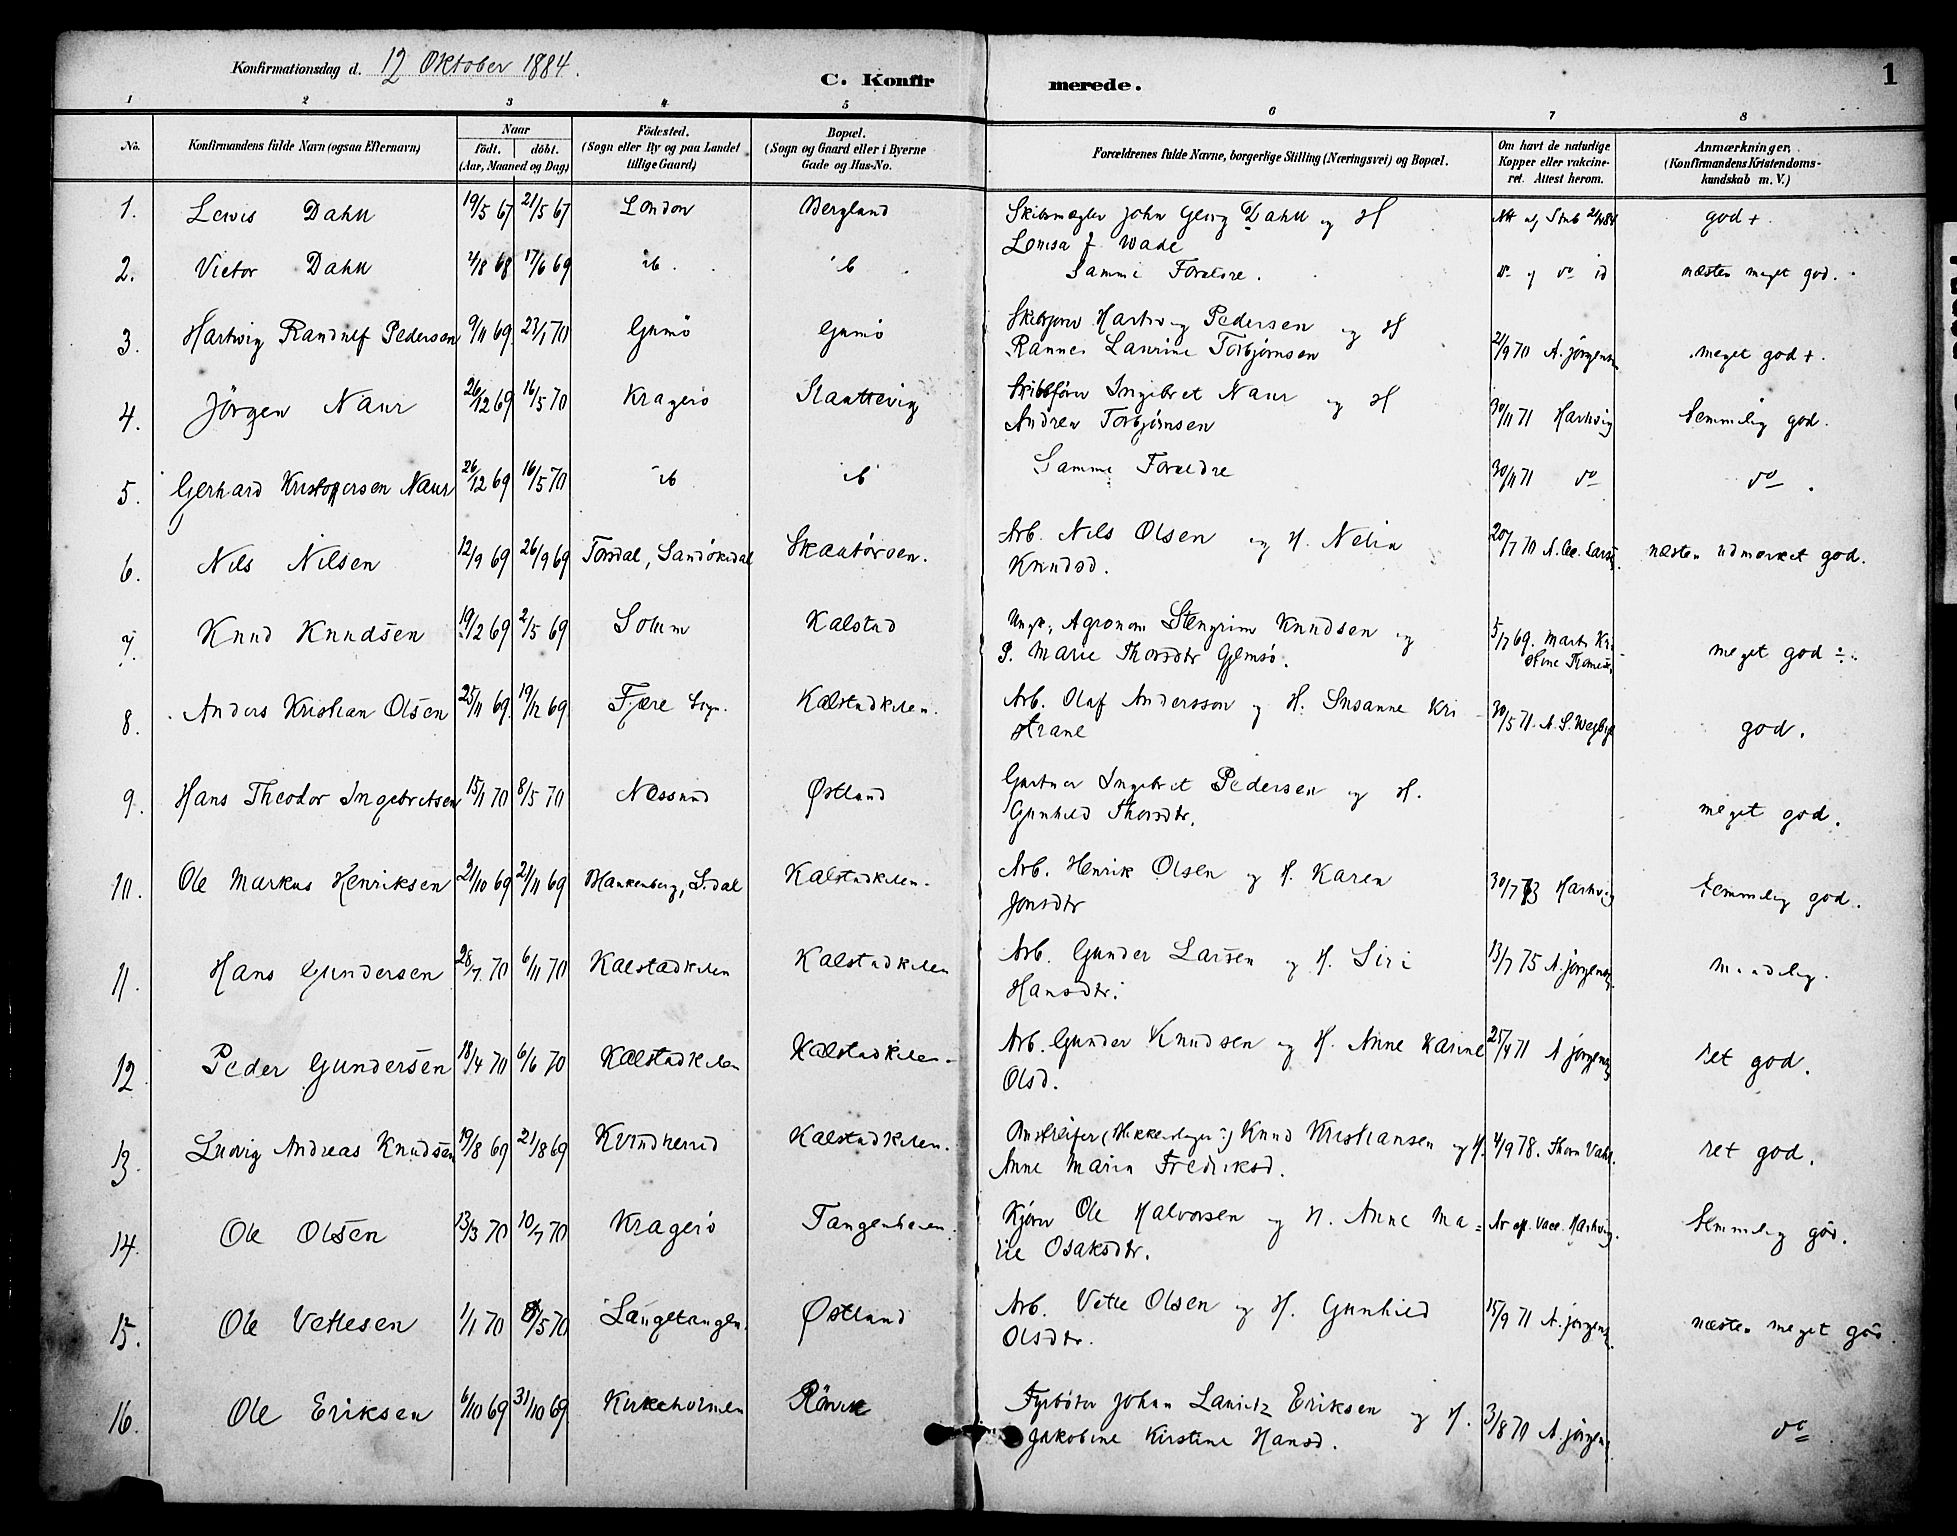 Konfirmationsdag d. 12 Oktober 1884.
C. Konfirmerede.
1
1 2 3 4 5 6 7 8
No. Konfirmandens fulde Navn (ogsaa Efternavn) Naar födt. döbt. (Aar, Maaned og Dag) Födested. (Sogn eller By og paa Landet tillige Gaard) Bopæl. (Sogn og Gaard eller i Byerne Gade og Hus-No. Forældrenes fulde Navne, borgerlige Stilling (Næringsvei) og Bopæl. Om havt de naturlige Kopper eller vakcineret. Attest herom. Anmærkninger, (Konfirmandens Kristendomskundskab m. V.)
1. Lewis Dahll 19/5 67 21/5 67 London Bergland Skibsmægler John Georg Dahll og H god +
Louisa J. Wade
2. Victor Dahll 4/8 68 17/6 69 ib. ib. Samme Forældre. do id næsten meget god.
3. Hartvig Randulf Pedersen 9/11 69 23/1 70 Gumö Gumö Hartvig Pedersen og H 2/9 70 A. Jörgensen meget god +.
Laurine Torbjörnsen
4. Jörgen Naur 26/12 69 16/5 70 Kragerö Slaattevig Skibsförer Ingebret Naur og H 30/11 71 Hartvig temmelig god.
Andrea Torbjörnsen
5. Gerhard Kristoffersen Naur 26/12 69 16/5 70 ib ib Samme Forældre 30/11 71 do do.
6. Nils Nilsen 12/9 69 26/9 69 Torsdal, Sandökedal Skaatörsen. Arb. Nils Olsen og H. Nelia 20/7 70 næsten udmerket god.
Knudsd.
7. Knud Knudsen 19/2 69 2/5 69 Solum Kalstad Ungk., Agronom Stengrim Knudsen og 5/7 69. meget god ÷.
P. Marie Thorsdtr Gjemsö.
8. Anders Kristian Olsen 25/11 69. 19/12 69. Fjære Sogn. Kalstadkilen. Arb. Olaf Andersson og H. Susanne Kri- 30/5 71. god.
stiane
9. Hans Theodor Ingebretsen 15/1 70 8/5 70 Næssund Østland Gartner Ingebret Pedersen og H. meget god.
Gunhild Thorsdtr.
10. Ole Markus Henriksen 21/10 69 21/11 69 Blankenberg, S.dal Kalstadkilen. Arb. Henrik Olsen og H. Karen 30/7 73 Hartvig temmelig god.
Jonsdtr
11. Hans Gundersen 28/7. 70 6/11 70 Kalstadkilen Kalstadkilen Arb. Gunder Larsen og H. Siri 13/7 75 A. Jörgensen maadelig.
Hansdtr.
12 Peder Gundersen 18/4 70 6/6 70 Kalstadkilen Kalstadkilen. Arb. Gunder Knudsen og H. Anne Karine 25/4 71 A Jörgensen ret god.
Olsd.
13. Ludvig Andreas Knudsen 19/8 69 21/8 69 Kvindherred Kalstadkilen. (Blikkenslager) Knud Kristiansen og H. 4/9 78. Thorn Vahl. ret god.
Anne Maria Frediksd.
14. Ole Olsen 13/3 70 10/7 70 Kragerö Tangenheien. Ole Halvorsen og H. Anne Ma=Hartvig. temmelig god.
rie Osaksdtr.
15. Ole Vetlesen 1/1 70 8/5 70 Langetangen. Østland Arb. Vetle Olsen og H. Gunhild 15/9 71 A. Jörgensen. næsten meget god
Olsdtr.
16. Ole Eriksen 6/10 69 31/10 69 Kirkeholmen Rörvik Fyrböter Johan Lauritz Eriksen og H. 3/8 70 A. Jörgens. do
Jakobine Kirstine Hansd.